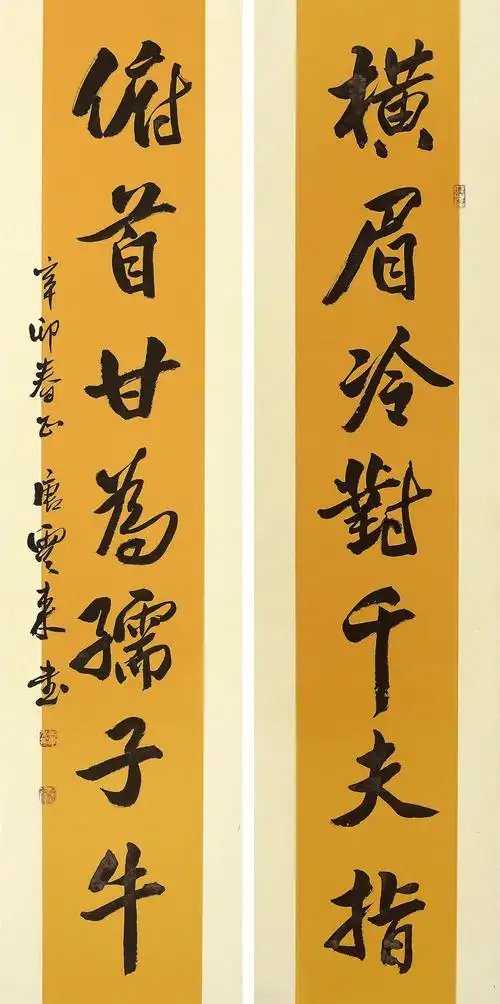 橫眉冷對千夫指
俯首甘為孺子牛
辛卯春正 唐雲來書